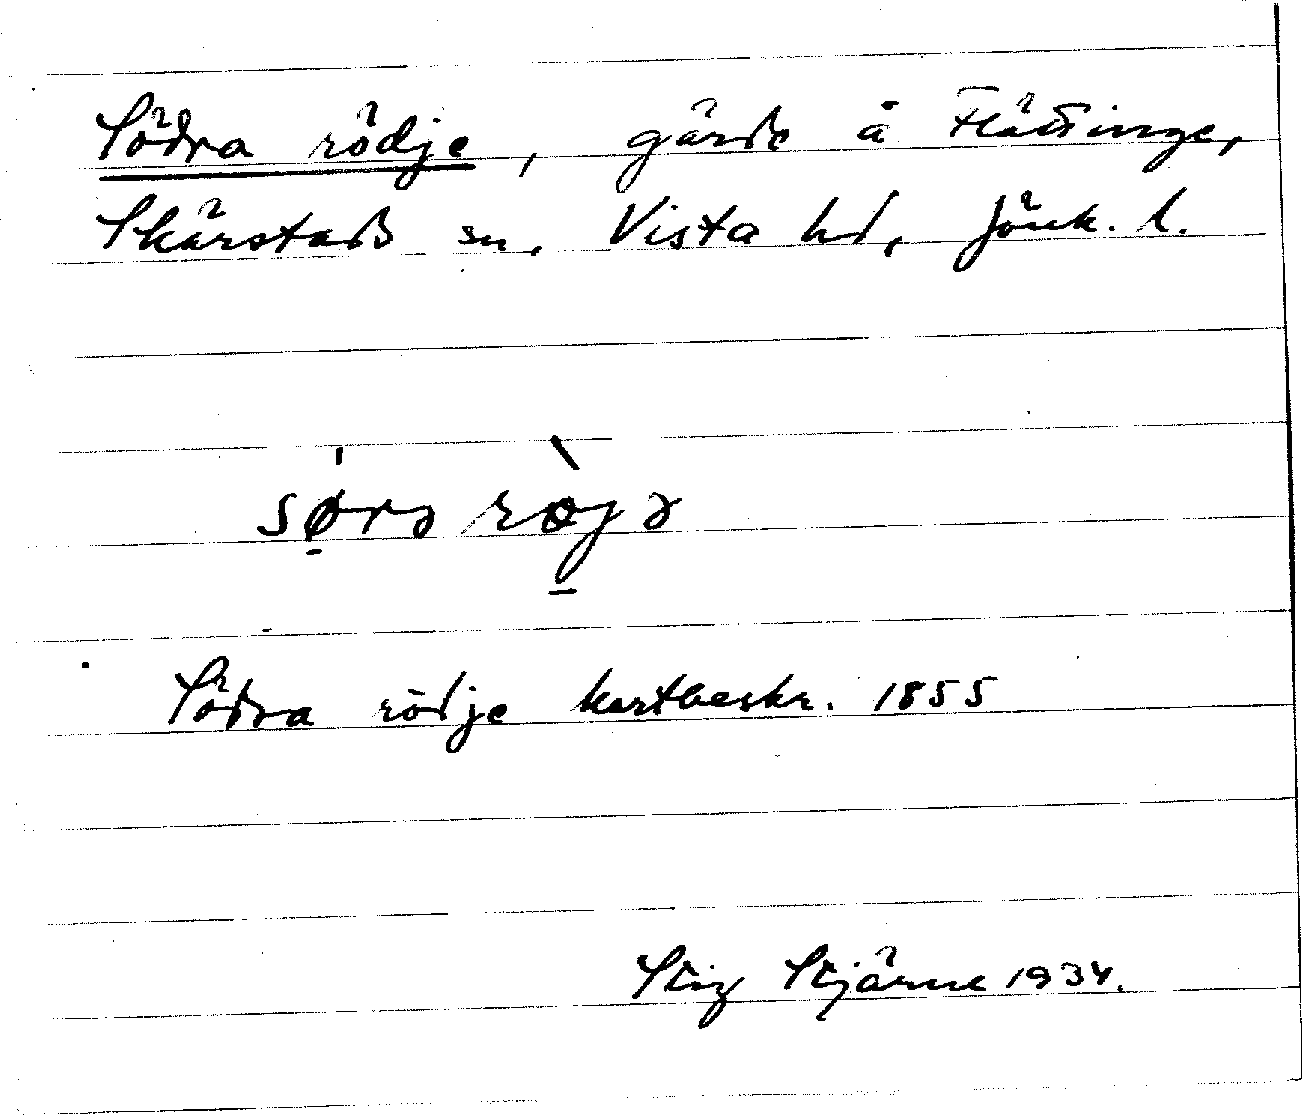 Södra rödje, gärde å Flättinge,
Skärstads sn, Vista hd, Jönk. l.
sørə røjə
Södra rödje kartbeskr. 1855
Stig Stjärne 1934.